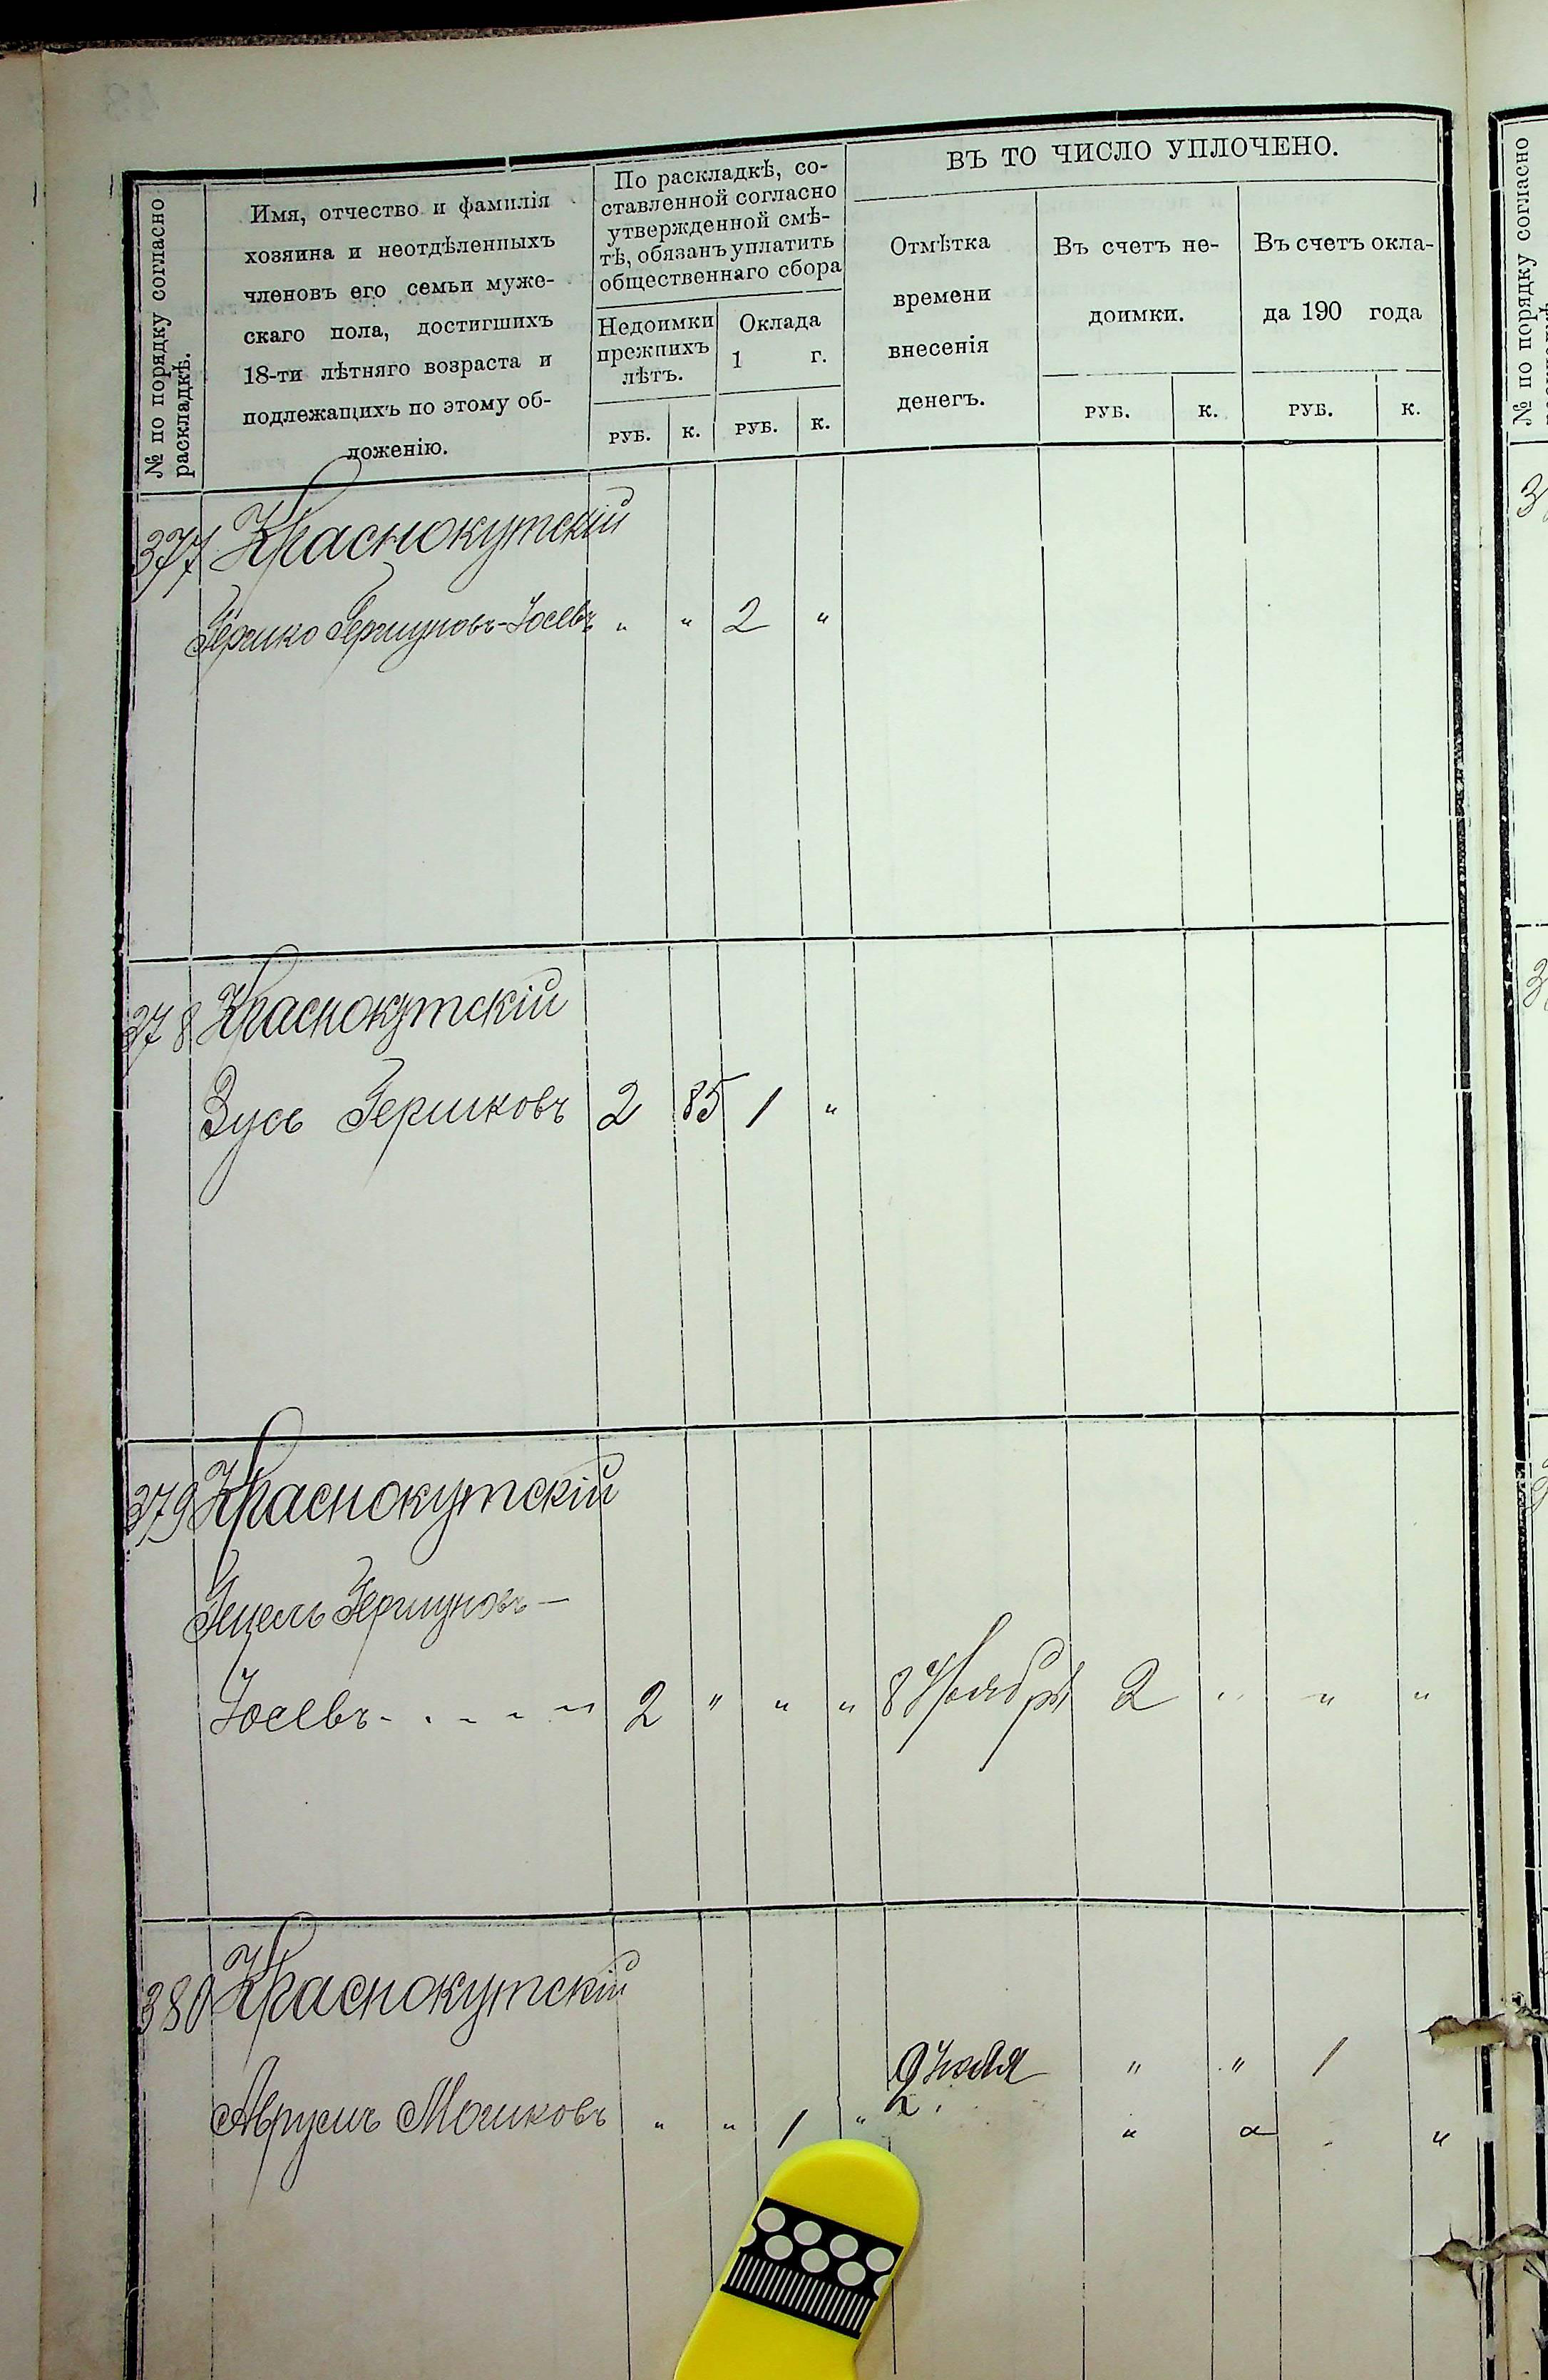 № по порядку согласно раскладкѣ.
Имя, отчество и фамилія
хозяина и неотдѣленныхъ
членовъ его семьи муже-
скаго пола, достигшихъ
18-ти лѣтняго возраста и
подлежащихъ по этому об-
ложенію.
По раскладкѣ, со-
ставленной согласно
утвержденной смѣ-
тѣ, обязанъ уплатить
общественнаго сбора
Недоимки
прежнихъ
лѣтъ.
Оклада
1 г.
РУБ. К. РУБ. К.
ВЪ ТО ЧИСЛО УПЛОЧЕНО.
Отмѣтка
времени
внесенія
денегъ.
Въ счетъ не-
доимки.
РУБ. К.
Въ счетъ окла-
да 190 года
РУБ. К.
377 Краснокутскій
Гершко Гершуновъ-Іосевъ " " 2 "
378 Краснокутскій
Зусь Гершковъ 2 85 1 "
379 Краснокутскій
Гецель Гершуновъ-
Іосевъ - - - - - 2 " " " 8 Ноября 2 " " "
380 Краснокутскій
2 Іюля " " 1
Аврумъ Мошковъ " " 1 " 2 " " "
№ по порядку согласно